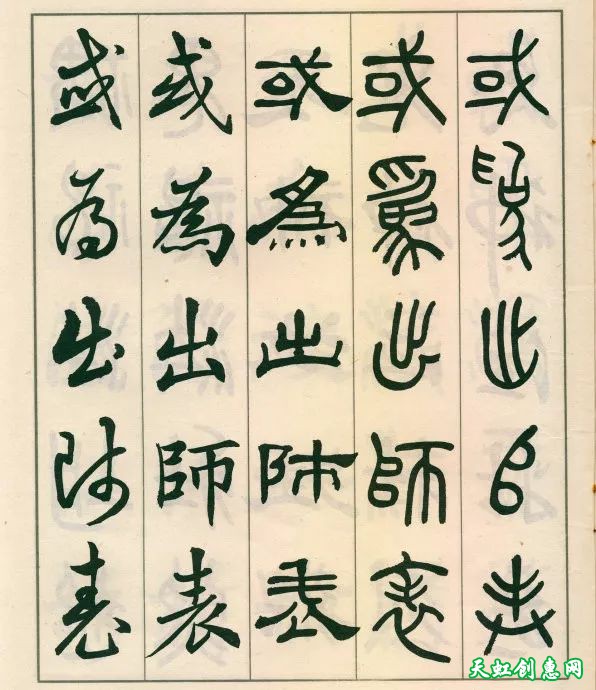 或爲出師表
或爲出師表
或爲出師表
或為出師表
或為出師表
天虹创惠网